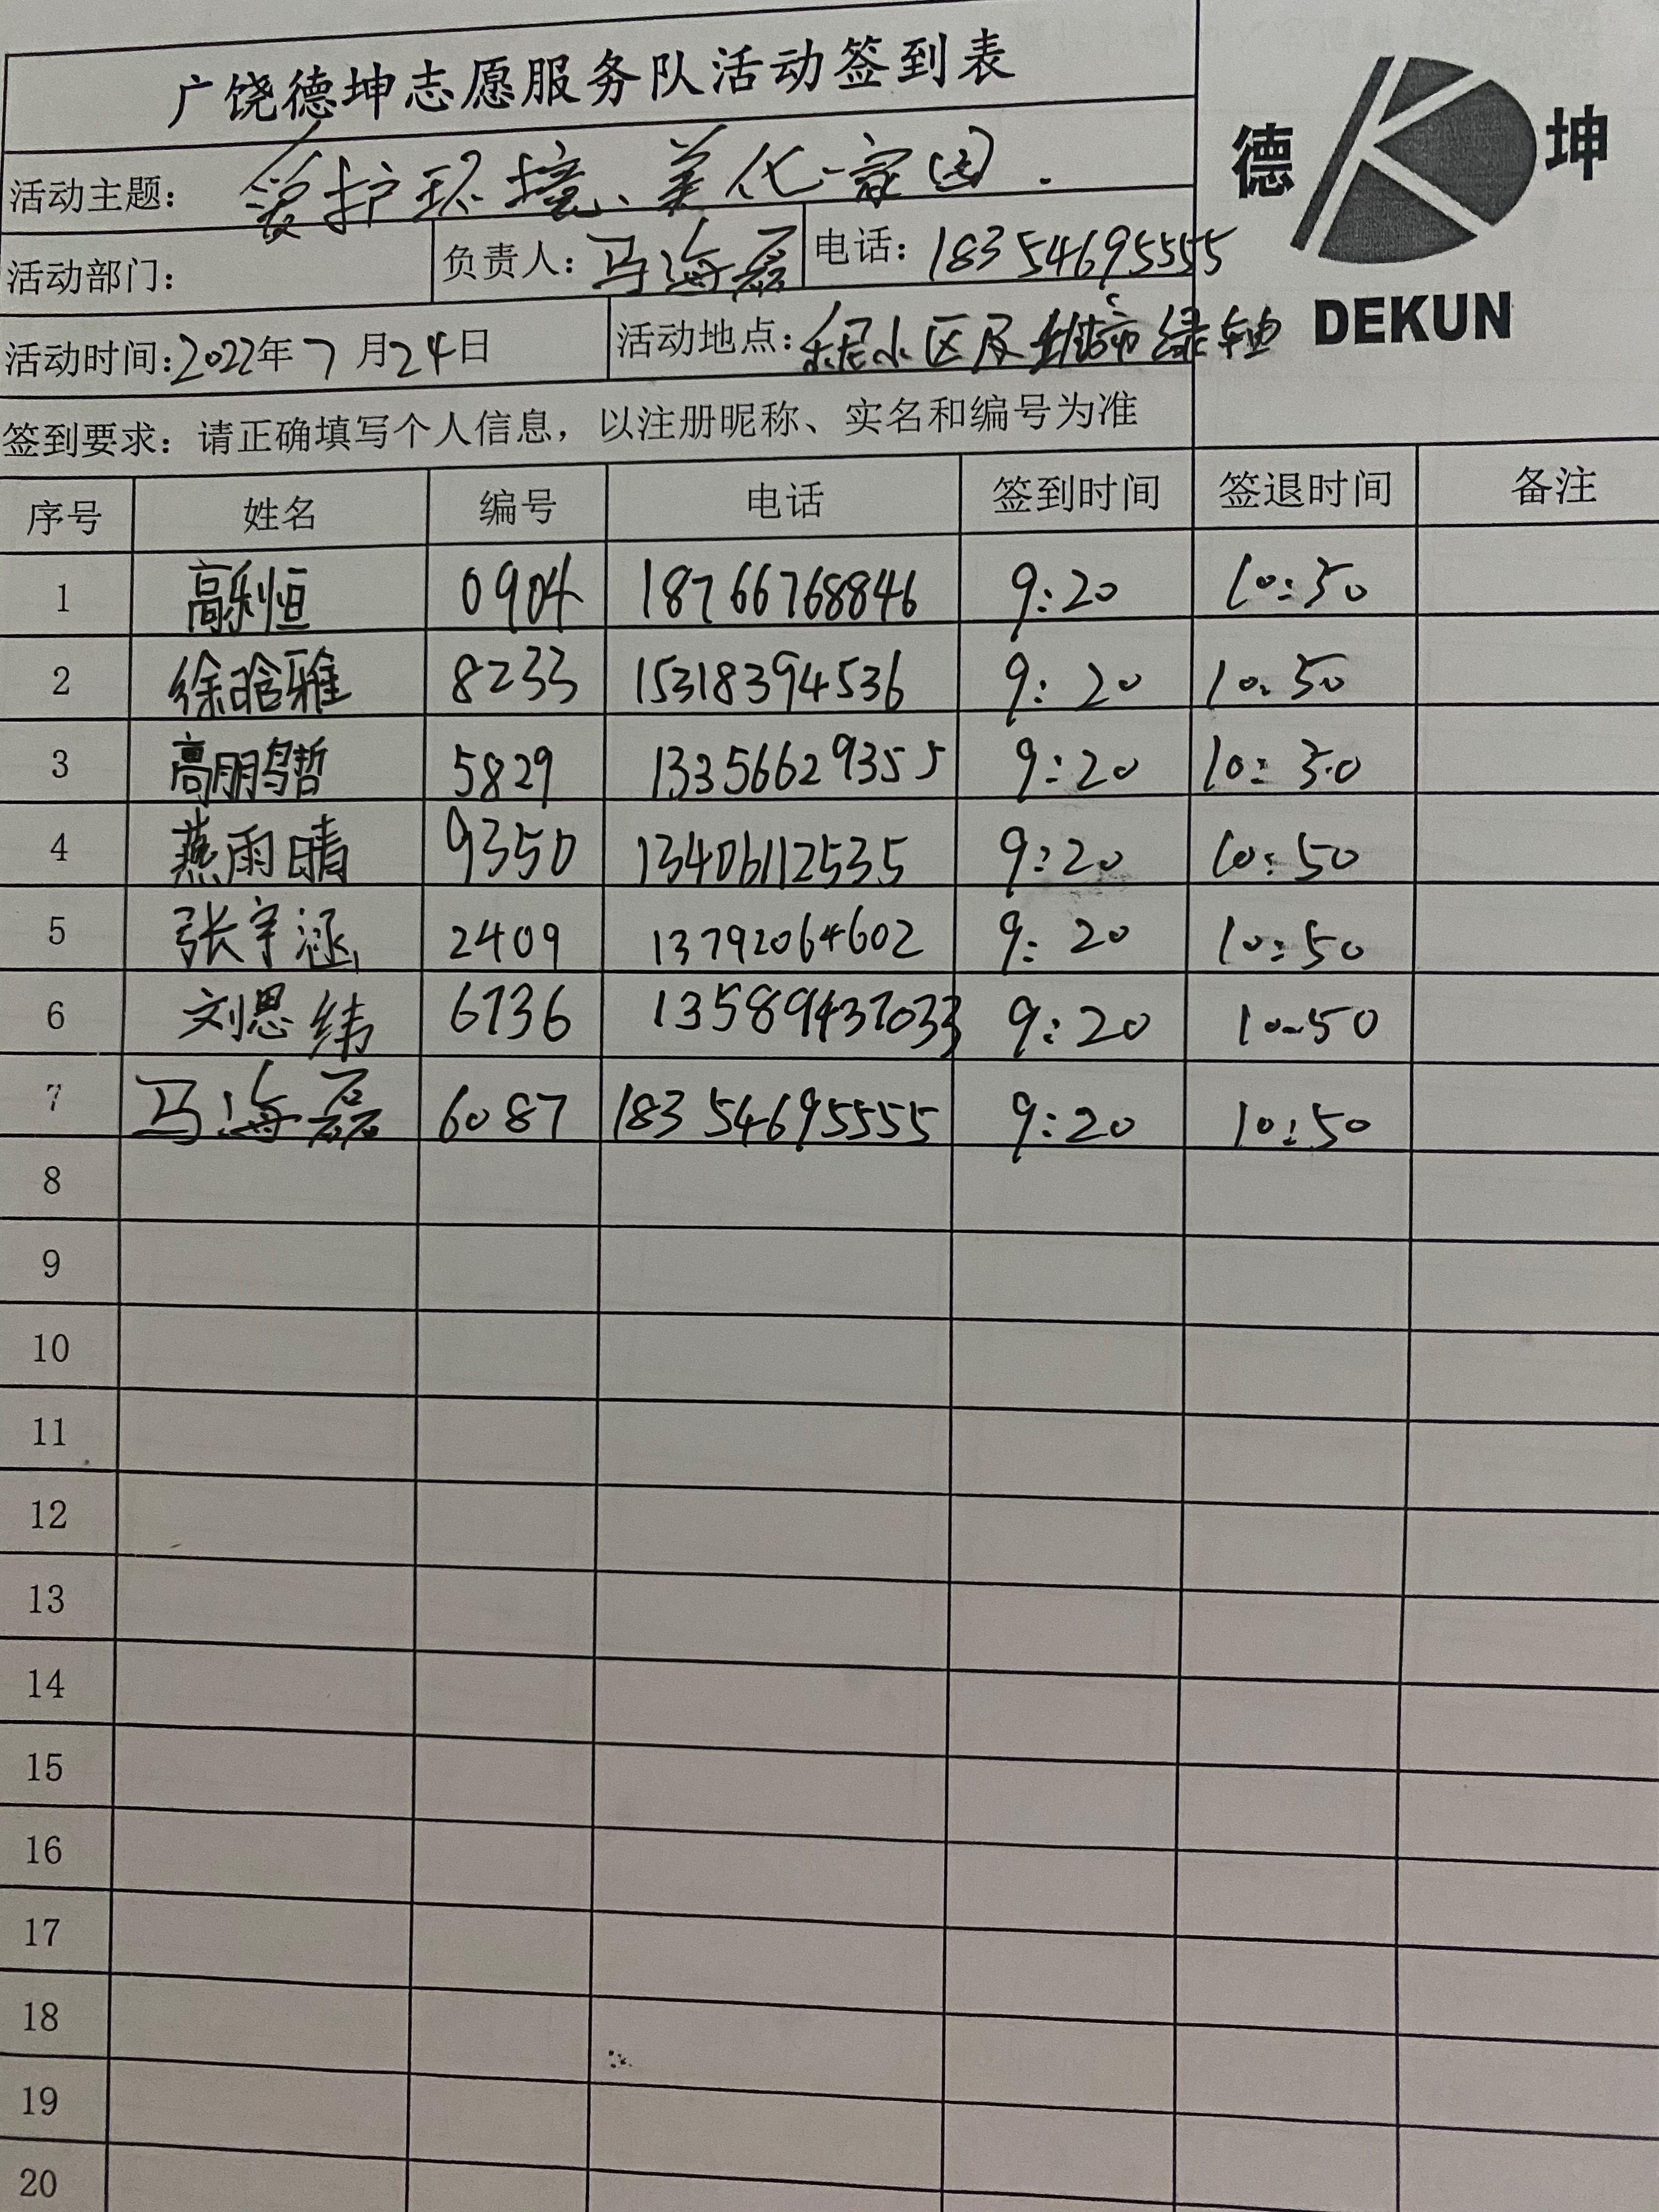 广饶德坤志愿服务队活动签到表
德 坤
DEKUN
活动主题: 爱护环境、美化家园.
活动部门: 负责人: 马海磊 电话: 18354695555
活动时间:2022年7月24日 活动地点: 小区及 绿轴
签到要求: 请正确填写个人信息, 以注册昵称、实名和编号为准
序号 姓名 编号 电话 签到时间 签退时间 备注
1 高乐恒 0904 18766768846 9:20 10:50
2 徐晗雅 8233 15318394536 9:20 10:50
3 高鹏哲 5829 13356629355 9:20 10:50
4 燕雨晴 9350 13406112535 9:20 10:50
5 张宇涵 2409 13792064602 9:20 10:50
6 刘思纬 6736 13589437033 9:20 10:50
7 马海磊 6087 18354695555 9:20 10:50
8
9
10
11
12
13
14
15
16
17
18
19
20